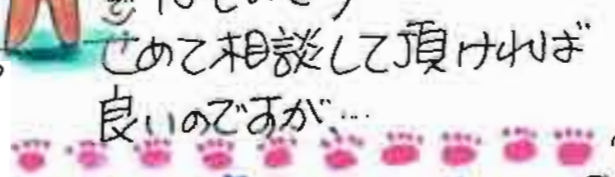 せめて相談して頂ければ
良いのですが…